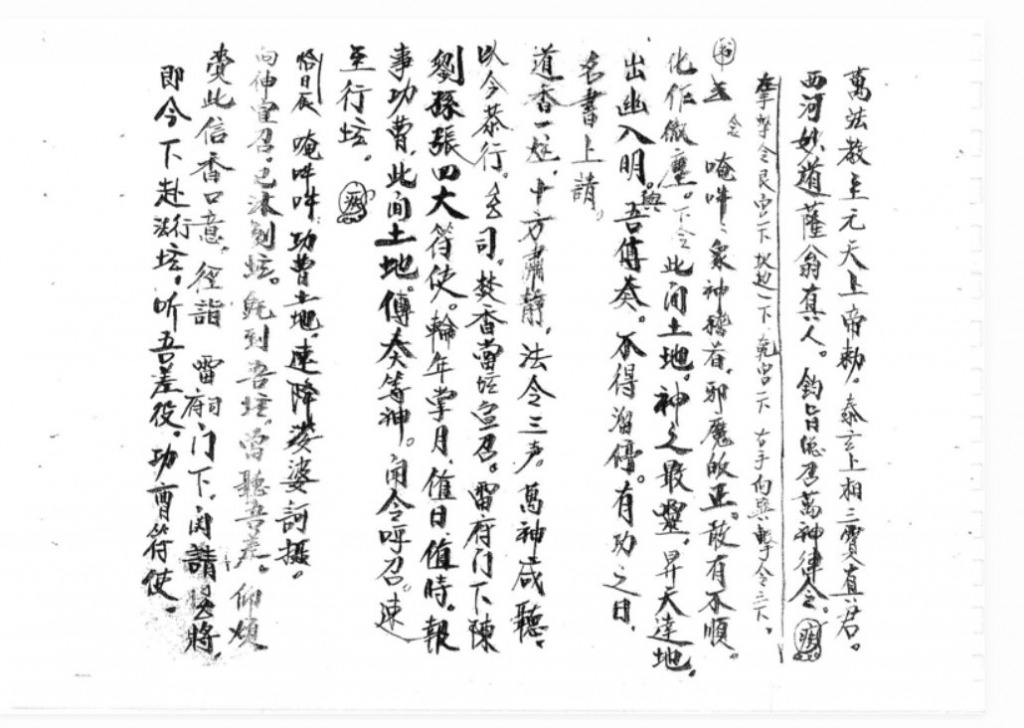 萬法教主元天上帝勅。泰玄上相三寶真君。
西河妙道薩翁真人。鈞旨總召萬神律令。
掌擊令艮宮一下 坎 一下 乾宮一下 左手向巽擊令三下。
唵吽吽衆神稽首。邪魔皈正。敢有不順。
念
化作微塵。下令此间土地。神之最靈。昇天達地。
出幽入明。與吾傳奏。不得溜停。有功之日。
名書上請。
道香一炷。十方肅静。法令三声。萬神咸聽。
以今恭行。 司。焚香當坛宣召。雷府门下陳
劉孫張四大符使。輪年掌月。值日值時。報
事功曹。此间土地。傳奏等神。闻令呼召。速
至行坛。
恰日辰 唵吽吽 功曹土地。速降婆婆訶攝。
向伸宣召。已沐到坛。既到吾坛。當聽吾差。仰煩
賫此信香口意。徑詣 雷府 门下。闵請 将。
即今下赴 行坛。听吾差役。功曹符使。